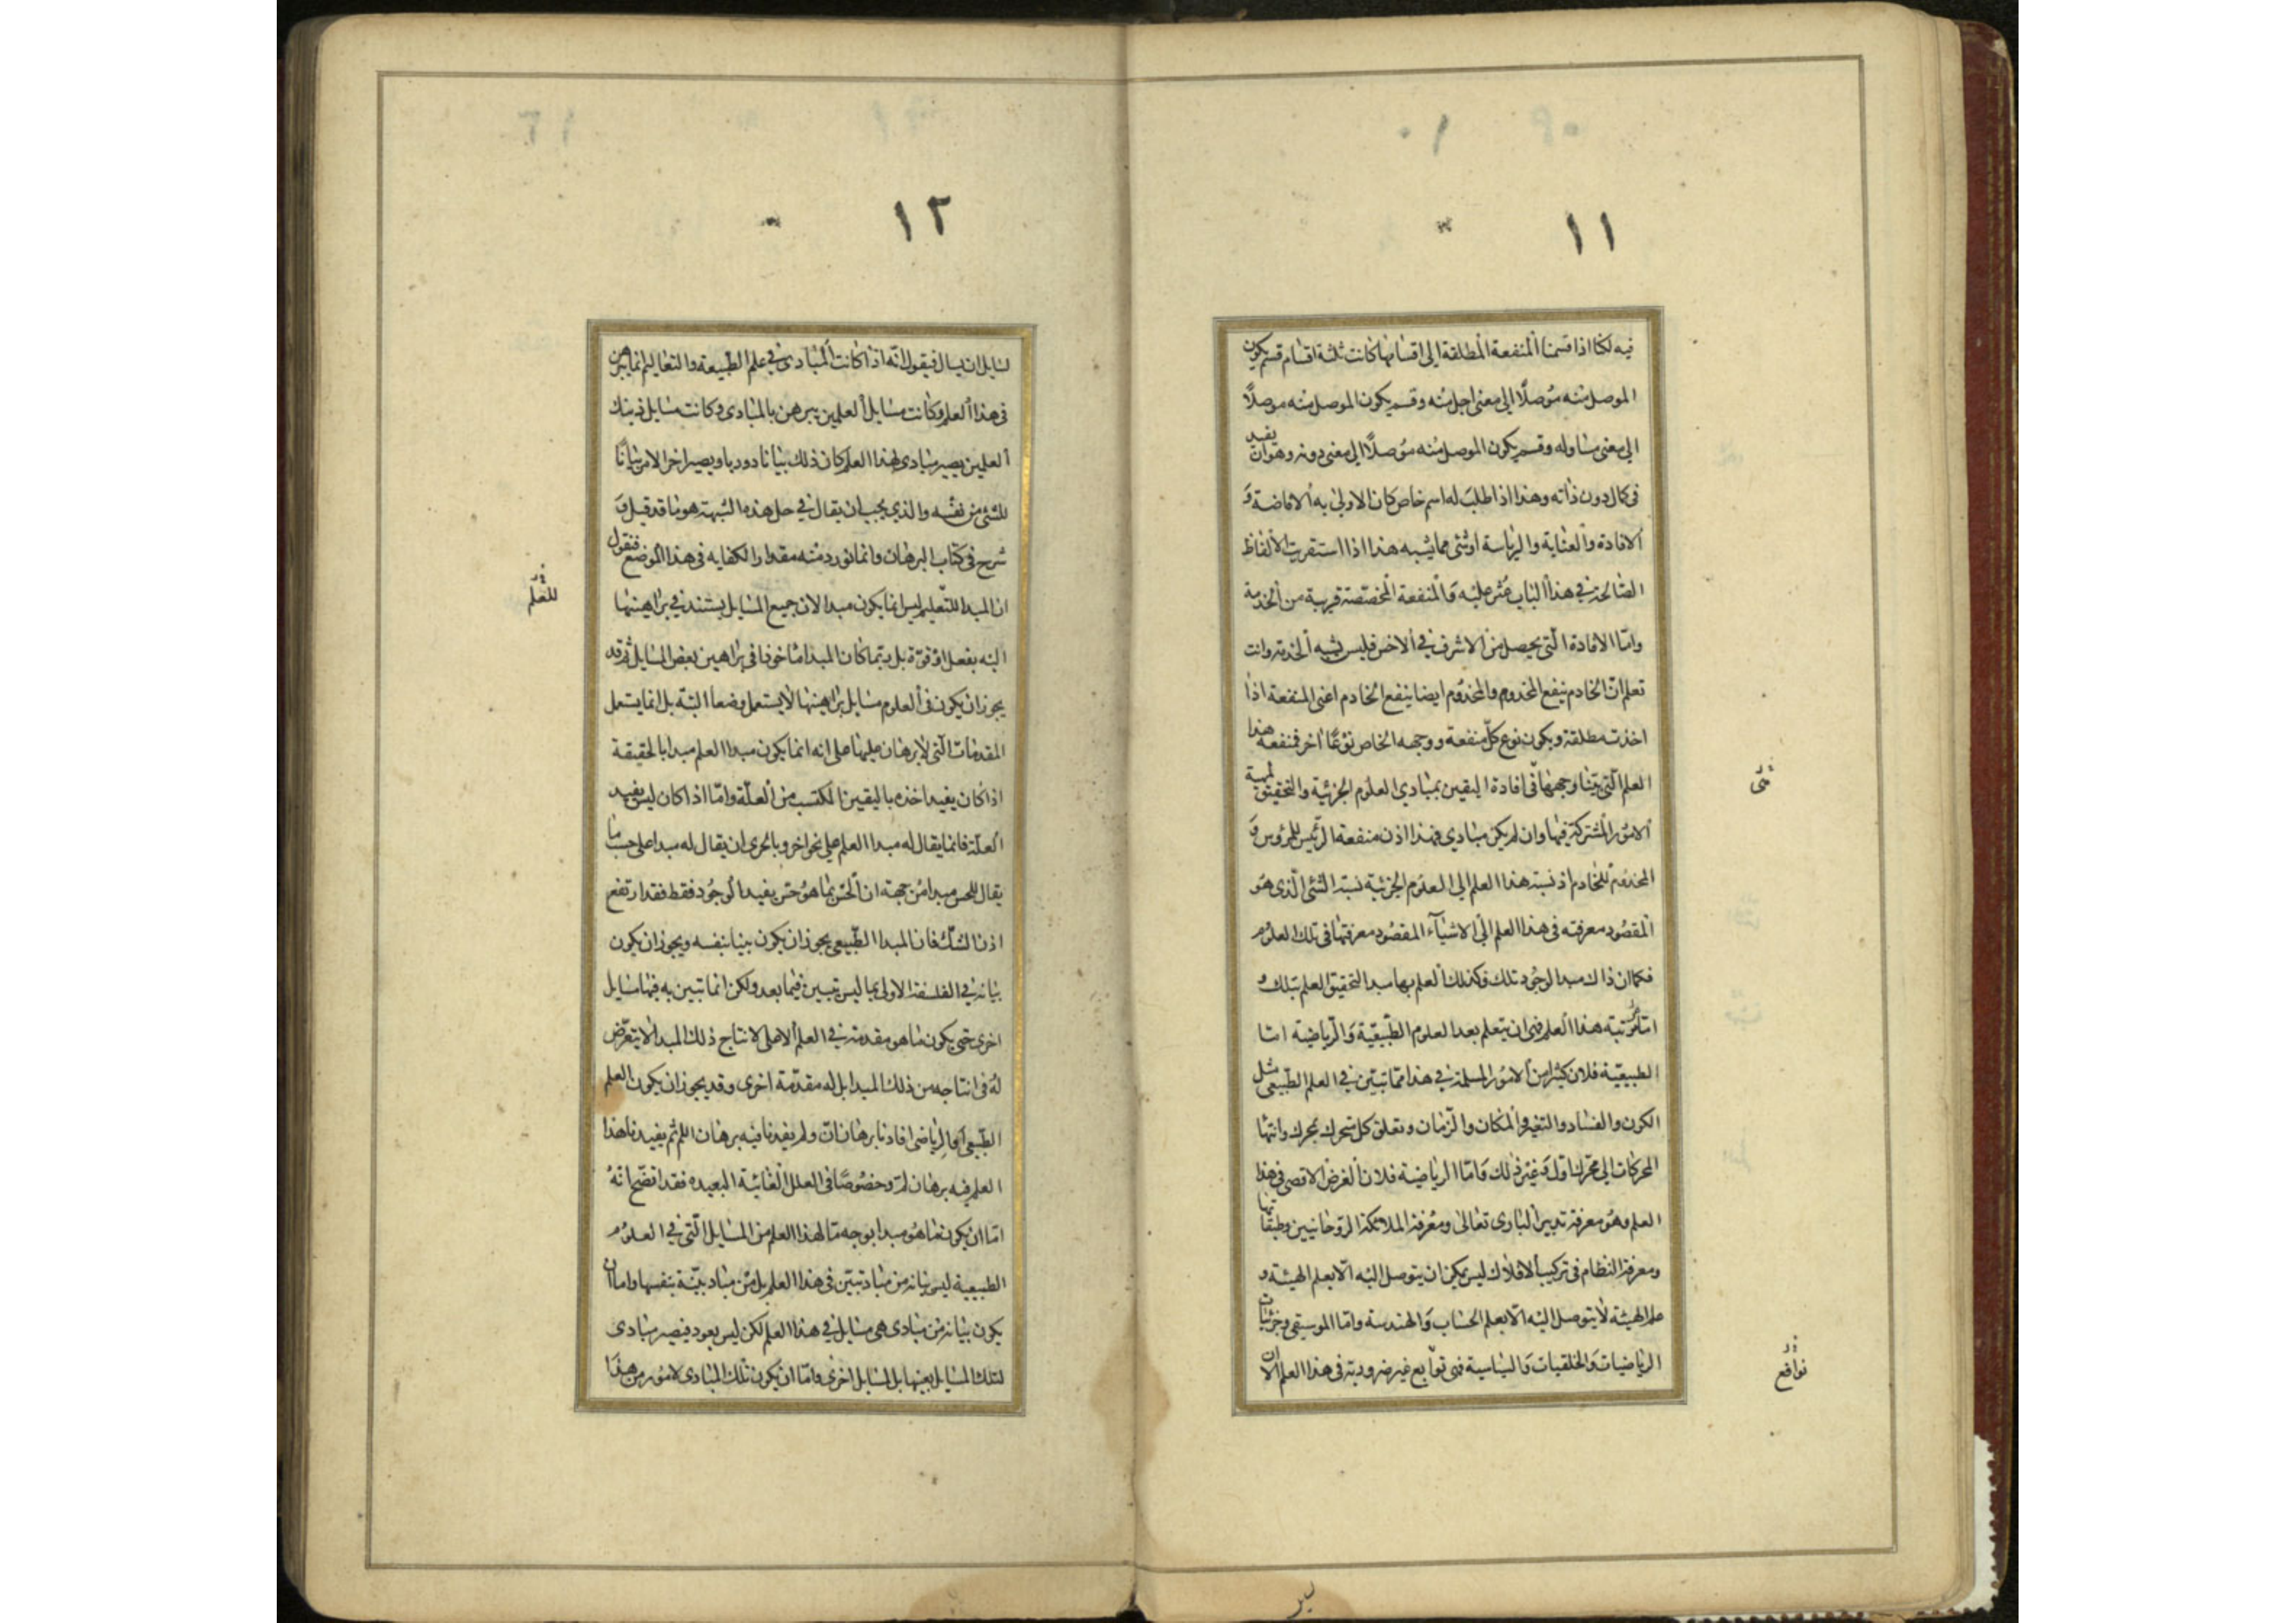 ١١
فيه لكنا اذا قسمنا المنفعة المطلقة الى اقسامها كانت ثلثة اقسام قسم يكون
الموصل منه موصلًا الى معنى اجل منه و قسم يكون الموصل منه موصلًا
الى معنى مساو له و قسم يكون الموصل منه موصلًا الى معنى دونه و هو ان يفيد
فى كمال دون ذاته و هذا اذا طلب له اسم خاص كان الاولى به الافاضة و
الافادة و العناية و الرياسة او شئ مما يشبه هذا اذا استقريت الالفاظ
الصالحة فى هذا الباب عثر عليه و المنفعة المخصصة قريبة من الخدمة
و امّا الافادة الّتى يحصل من الاشرف فى الاخس فليس يشبه الخدمة و انت
تعلم انّ الخادم ينفع المخدوم و المخدوم ايضا ينفع الخادم اعنى المنفعة اذا
اخذت مطلقة و يكون نوع كلّ منفعة و وجهه الخاص نوعًا اخر فمنفعة هذا
العلم الّتى بيّنا وجهها فى افادة اليقين بمبادى العلوم الجزئية و التحقيق لمهية
الامور المشتركة فيها و ان لم يكن مبادى فهذا اذن منفعة الرئيس للمرؤس و
المخدوم للخادم اذ نسبة هذا العلم الى العلوم الجزئية نسبة الشئ الّذى هو
المقصود معرفته فى هذا العلم الى الاشيآء المقصود معرفتها فى تلك العلوم
فكما ان ذاك مبدا لوجود تلك فكذلك العلم بها مبدا لتحقيق العلم بتلك و
امّا مرتبة هذا العلم فهى ان يتعلم بعد العلوم الطّبيعيّة و الرّياضية امّا
الطبيعيّة فلان كثيرا من الامور المسلمة فى هذا ممّا تبيّن فى العلم الطّبيعى مثل
الكون و الفساد و التغير و المكان و الزّمان و تعلق كل متحرك بمحرك و انتها
المحركات الى محرّك اوّل و غير ذلك و امّا الرياضية فلان الغرض الاقصى فى هذا
العلم و هو معرفة تدبير البارى تعالى و معرفة الملائكة الرّوحانيين و طبقاتها
و معرفة النظام فى تركيب الافلاك ليس يمكن ان يتوصل اليه الّا بعلم الهيئة و
علم الهيئة لا يتوصل اليه الّا بعلم الحساب و الهندسة و امّا الموسيقى و جزئيات
الرياضيات و الخلقيات و السياسية فهى توابع غير ضرورية فى هذا العلم الا ان
نوافع
١٢
لسايل ان يسال فيقول انّه اذا كانت المبادى فى علم الطبيعة و التعاليم انما يبرهن
فى هذا العلم و كانت مسايل العلمين يبرهن بالمبادى و كانت مسايل ذينك
العلمين يصير مبادى لهذا العلم كان ذلك بيانا دوريا و يصير اخر الامر بيانًا
للشئ من نفسه و الذى يجب ان يقال فى حل هذه الشبهة هو ما قد قيل و
شرح فى كتاب البرهان و انما نورد منه مقدار الكفايه فى هذا الموضع فنقول
ان المبدا للتّعليم ليس انما يكون مبدا لان جميع المسايل يستند فى براهينها
اليه بفعل او قوّة بل ربّما كان المبدا ماخوذا فى براهين بعض المسايل ثم قد
يجوز ان يكون فى العلوم مسايل براهينها لا يستعمل وضعا البتّه بل انما يستعمل
المقدمات الّتى لا برهان عليها على انه انما يكون مبدا العلم مبدا بالحقيقة
اذا كان يفيد اخذه باليقين المكتسب من العلّة و امّا اذا كان ليس يفيد
العلّة فانما يقال له مبدا العلم على نحو اخر و بالحرى ان يقال له مبدا على حسب ما
يقال للحس مبدا من جهة ان الحسّ بما هو حس يفيد الوجود فقط فقد ارتفع
اذن الشك فان المبدا الطّبيعى يجوز ان يكون بينا بنفسه و يجوز ان يكون
بيانه فى الفلسفة الاولى بما ليس تبيين فيما بعد و لكن انما تبين به فيها مسايل
اخرى حتى يكون ما هو مقدمة فى العلم الاعلى لانتاج ذلك المبدا لا يتعرّض
له فى انتاجه من ذلك المبدا بل له مقدّمة اخرى و قد يجوز ان يكون العلم
الطّبيعى او الرياضى افادنا برهان انّ و لم يفيدنا فيه برهان اللم ثم يفيدنا هذا
العلم فيه برهان لم و خصوصًا فى العلل الغائيّة البعيده فقد اتضح انه
امّا ان يكون ما هو مبدا بوجه ما لهذا العلم من المسايل الّتى فى العلوم
الطبيعية ليس بيانه من مباد تبيّن فى هذا العلم بل من مباد بيّنة بنفسها و اما ان
يكون بيانه من مبادى هى مسايل فى هذا العلم لكن ليس يعود فيصير مبادى
لتلك المسايل بعينها بل لمسايل اخرى و امّا ان يكون تلك المبادى لامور من هذا